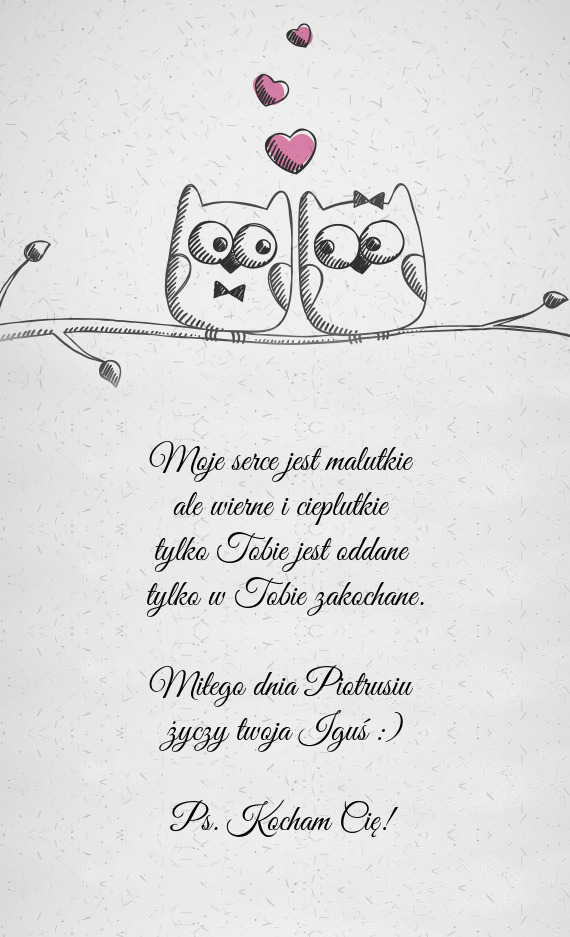 Moje serce jest malutkie
ale wierne i cieplutkie
tylko Tobie jest oddane
tylko w Tobie zakochane.
Miłego dnia Piotrusiu
życzy twoja Iguś :)
Ps. Kocham Cię!